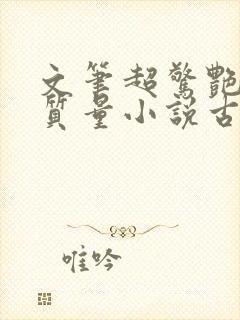 文筆超驚艷
質量小說古
唯吟